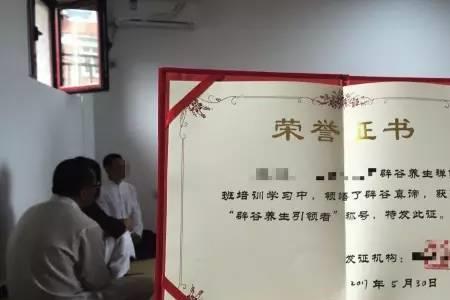 荣誉证书
辟谷养生禅
班培训学习中,领悟了辟谷真谛,获
“辟谷养生引领者”称号,特发此证。
发证机构:
2017年5月30日